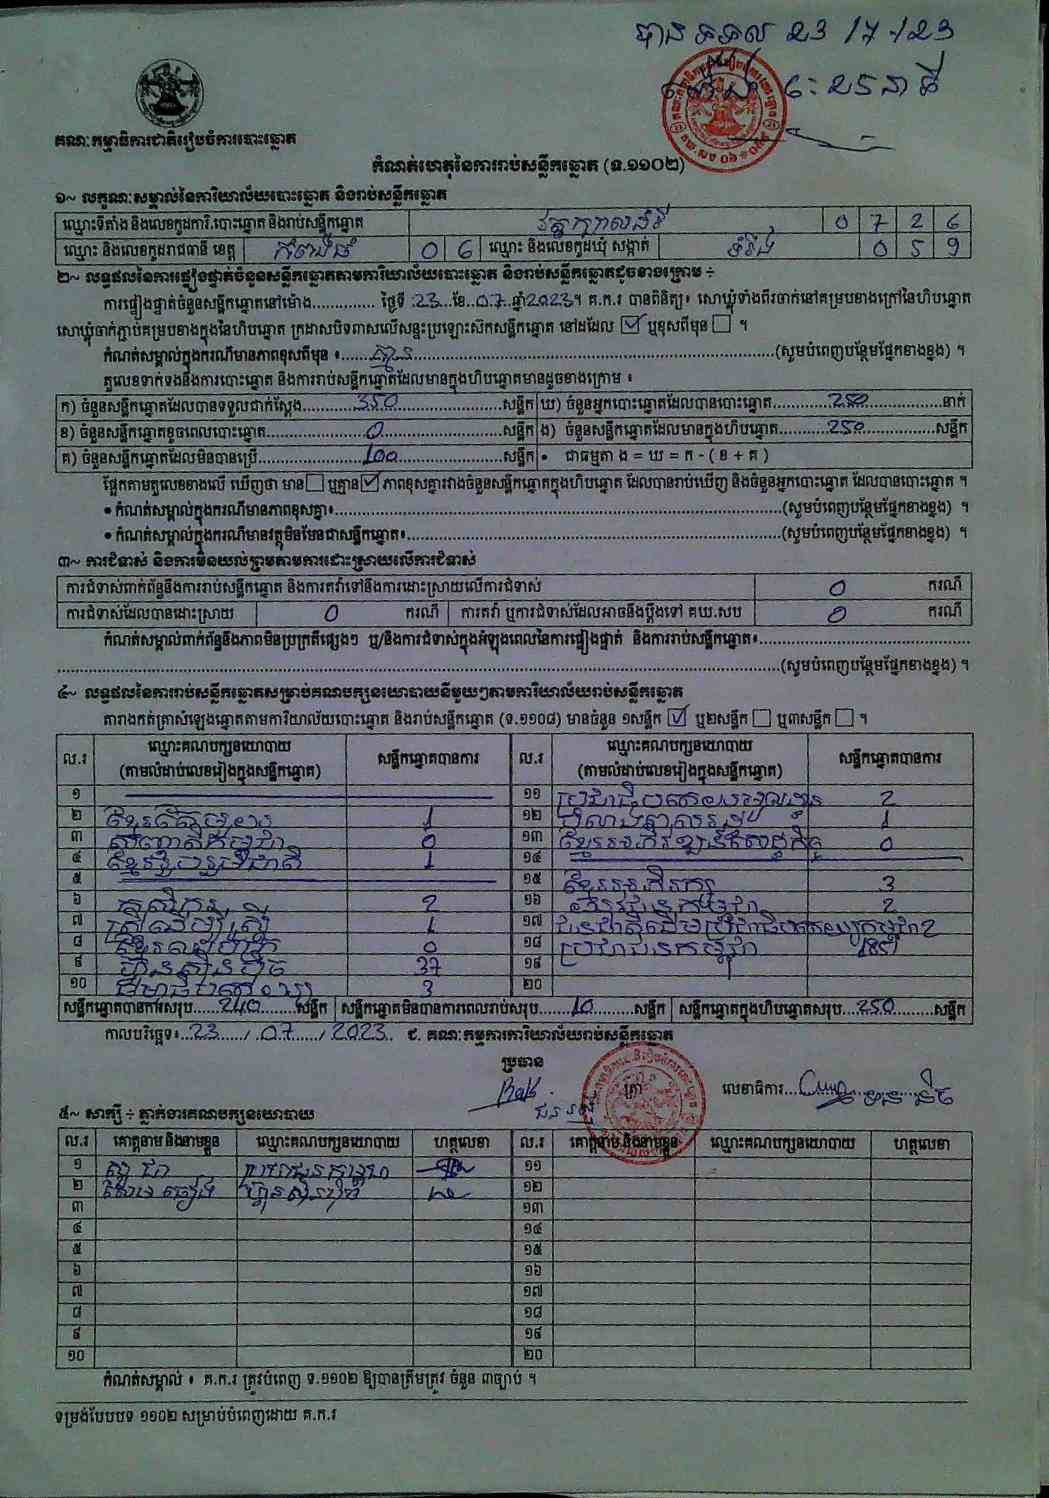 បានទទួល 23/7/23
ម៉ោង ៤:២៥នាទី
គណៈកម្មាធិការជាតិរៀបចំការបោះឆ្នោត
កំណត់ហេតុនៃការរាប់សន្លឹកឆ្នោត (ទ.១១០២)
១~ លក្ខណៈសម្គាល់នៃការិយាល័យបោះឆ្នោត និងរាប់សន្លឹកឆ្នោត
ឈ្មោះទីតាំង និងលេខកូដការិ.បោះឆ្នោត និងរាប់សន្លឹកឆ្នោត 0 7 2 6
ឈ្មោះ និងលេខកូដរាជធានី ខេត្ត កំពង់ធំ 0 6 ឈ្មោះ និងលេខកូដឃុំ សង្កាត់ ទំរីង 0 5 9
២~ លទ្ធផលនៃការផ្ទៀងផ្ទាត់ចំនួនសន្លឹកឆ្នោតតាមការិយាល័យបោះឆ្នោត និងរាប់សន្លឹកឆ្នោតដូចខាងក្រោម ÷
ការផ្ទៀងផ្ទាត់ចំនួនសន្លឹកឆ្នោតនៅម៉ោង............. ថ្ងៃទី .23...ខែ..07..ឆ្នាំ2023។ គ.ក.រ បានពិនិត្យ៖ សោឃ្លុំទាំងពីរចាក់នៅគម្របខាងក្រៅនៃហិបឆ្នោត
សោឃ្លុំចាក់ភ្ជាប់គម្របខាងក្នុងនៃហិបឆ្នោត ក្រដាសបិទពាសលើសន្ទះប្រឡោះស៊កសន្លឹកឆ្នោត នៅដដែល ☑ ឬខុសពីមុន ☐ ។
កំណត់សម្គាល់ក្នុងករណីមានភាពខុសពីមុន ៖......គ្មាន......(សូមបំពេញបន្ថែមផ្នែកខាងខ្នង) ។
តួលេខទាក់ទងនឹងការបោះឆ្នោត និងការរាប់សន្លឹកឆ្នោតដែលមានក្នុងហិបឆ្នោតមានដូចខាងក្រោម ៖
ក) ចំនួនសន្លឹកឆ្នោតដែលបានទទួលជាក់ស្តែង......350......សន្លឹក ឃ) ចំនួនអ្នកបោះឆ្នោតដែលបានបោះឆ្នោត......250......នាក់
ខ) ចំនួនសន្លឹកឆ្នោតខូចពេលបោះឆ្នោត......0......សន្លឹក ង) ចំនួនសន្លឹកឆ្នោតដែលមានក្នុងហិបឆ្នោត......250......សន្លឹក
គ) ចំនួនសន្លឹកឆ្នោតដែលមិនបានប្រើ......100......សន្លឹក • ជាធម្មតា ង = ឃ = ក - ( ខ + គ )
ផ្អែកតាមតួលេខខាងលើ ឃើញថា មាន ☐ ឬគ្មាន ☑ ភាពខុសគ្នារវាងចំនួនសន្លឹកឆ្នោតក្នុងហិបឆ្នោត ដែលបានរាប់ឃើញ និងចំនួនអ្នកបោះឆ្នោត ដែលបានបោះឆ្នោត ។
• កំណត់សម្គាល់ក្នុងករណីមានភាពខុសគ្នា៖......(សូមបំពេញបន្ថែមផ្នែកខាងខ្នង) ។
• កំណត់សម្គាល់ក្នុងករណីមានវត្ថុមិនមែនជាសន្លឹកឆ្នោត៖......(សូមបំពេញបន្ថែមផ្នែកខាងខ្នង) ។
៣~ ការជំទាស់ និងការមិនយល់ព្រមតាមការដោះស្រាយលើការជំទាស់
ការជំទាស់ពាក់ព័ន្ធនឹងការរាប់សន្លឹកឆ្នោត និងការតវ៉ាទៅនឹងការដោះស្រាយលើការជំទាស់ 0 ករណី
ការជំទាស់ដែលបានដោះស្រាយ 0 ករណី ការតវ៉ា ឬការជំទាស់ដែលអាចនឹងប្តឹងទៅ គឃ.សប 0 ករណី
កំណត់សម្គាល់ពាក់ព័ន្ធនឹងភាពមិនប្រក្រតីផ្សេងៗ ឬ/និងការជំទាស់ក្នុងអំឡុងពេលនៃការផ្ទៀងផ្ទាត់ និងការរាប់សន្លឹកឆ្នោត៖......
......(សូមបំពេញបន្ថែមផ្នែកខាងខ្នង) ។
៤~ លទ្ធផលនៃការរាប់សន្លឹកឆ្នោតសម្រាប់គណបក្សនយោបាយនីមួយៗតាមការិយាល័យរាប់សន្លឹកឆ្នោត
តារាងកត់ត្រាសំឡេងឆ្នោតតាមការិយាល័យបោះឆ្នោត និងរាប់សន្លឹកឆ្នោត (ទ.១១០៨) មានចំនួន ១សន្លឹក ☑ ឬ២សន្លឹក ☐ ឬ៣សន្លឹក ☐ ។
ល.រ ឈ្មោះគណបក្សនយោបាយ (តាមលំដាប់លេខរៀងក្នុងសន្លឹកឆ្នោត) សន្លឹកឆ្នោតបានការ ល.រ ឈ្មោះគណបក្សនយោបាយ (តាមលំដាប់លេខរៀងក្នុងសន្លឹកឆ្នោត) សន្លឹកឆ្នោតបានការ
១ ១១ ប្រជាធិបតេយ្យមូលដ្ឋាន 2
២ 1 ១២ 1
៣ សញ្ជាតិកម្ពុជា 0 ១៣ 0
៤ ខ្មែររួបរួមជាតិ 1 ១៤
៥ ១៥ ខ្មែរអភិរក្ស 3
៦ កសិករ 2 ១៦ 2
៧ ស្រ្តីដើម្បីស្រ្តី 1 ១៧ ជនជាតិដើមប្រជាធិបតេយ្យកម្ពុជា 2
៨ 0 ១៨ ប្រជាជនកម្ពុជា 185
៩ ហ្វ៊ុនស៊ិនប៉ិច 37 ១៩
១០ 3 ២០
សន្លឹកឆ្នោតបានការសរុប.....240.....សន្លឹក សន្លឹកឆ្នោតមិនបានការពេលរាប់សរុប.....10.....សន្លឹក សន្លឹកឆ្នោតក្នុងហិបឆ្នោតសរុប...250.....សន្លឹក
កាលបរិច្ឆេទ៖..23..../..07..../..2023.. ជ. គណៈកម្មការការិយាល័យរាប់សន្លឹកឆ្នោត
ប្រធាន
ត្រា លេខាធិការ......
៥~ សាក្សី ÷ ភ្នាក់ងារគណបក្សនយោបាយ
ល.រ គោត្តនាម និងនាមខ្លួន ឈ្មោះគណបក្សនយោបាយ ហត្ថលេខា ល.រ គោត្តនាម និងនាមខ្លួន ឈ្មោះគណបក្សនយោបាយ ហត្ថលេខា
១ ប្រជាជនកម្ពុជា ១១
២ ហ្វ៊ុនស៊ិនប៉ិច ១២
៣ ១៣
៤ ១៤
៥ ១៥
៦ ១៦
៧ ១៧
៨ ១៨
៩ ១៩
១០ ២០
កំណត់សម្គាល់ ៖ គ.ក.រ ត្រូវបំពេញ ទ.១១០២ ឱ្យបានត្រឹមត្រូវ ចំនួន ៣ច្បាប់ ។
ទម្រង់បែបបទ ១១០២ សម្រាប់បំពេញដោយ គ.ក.រ